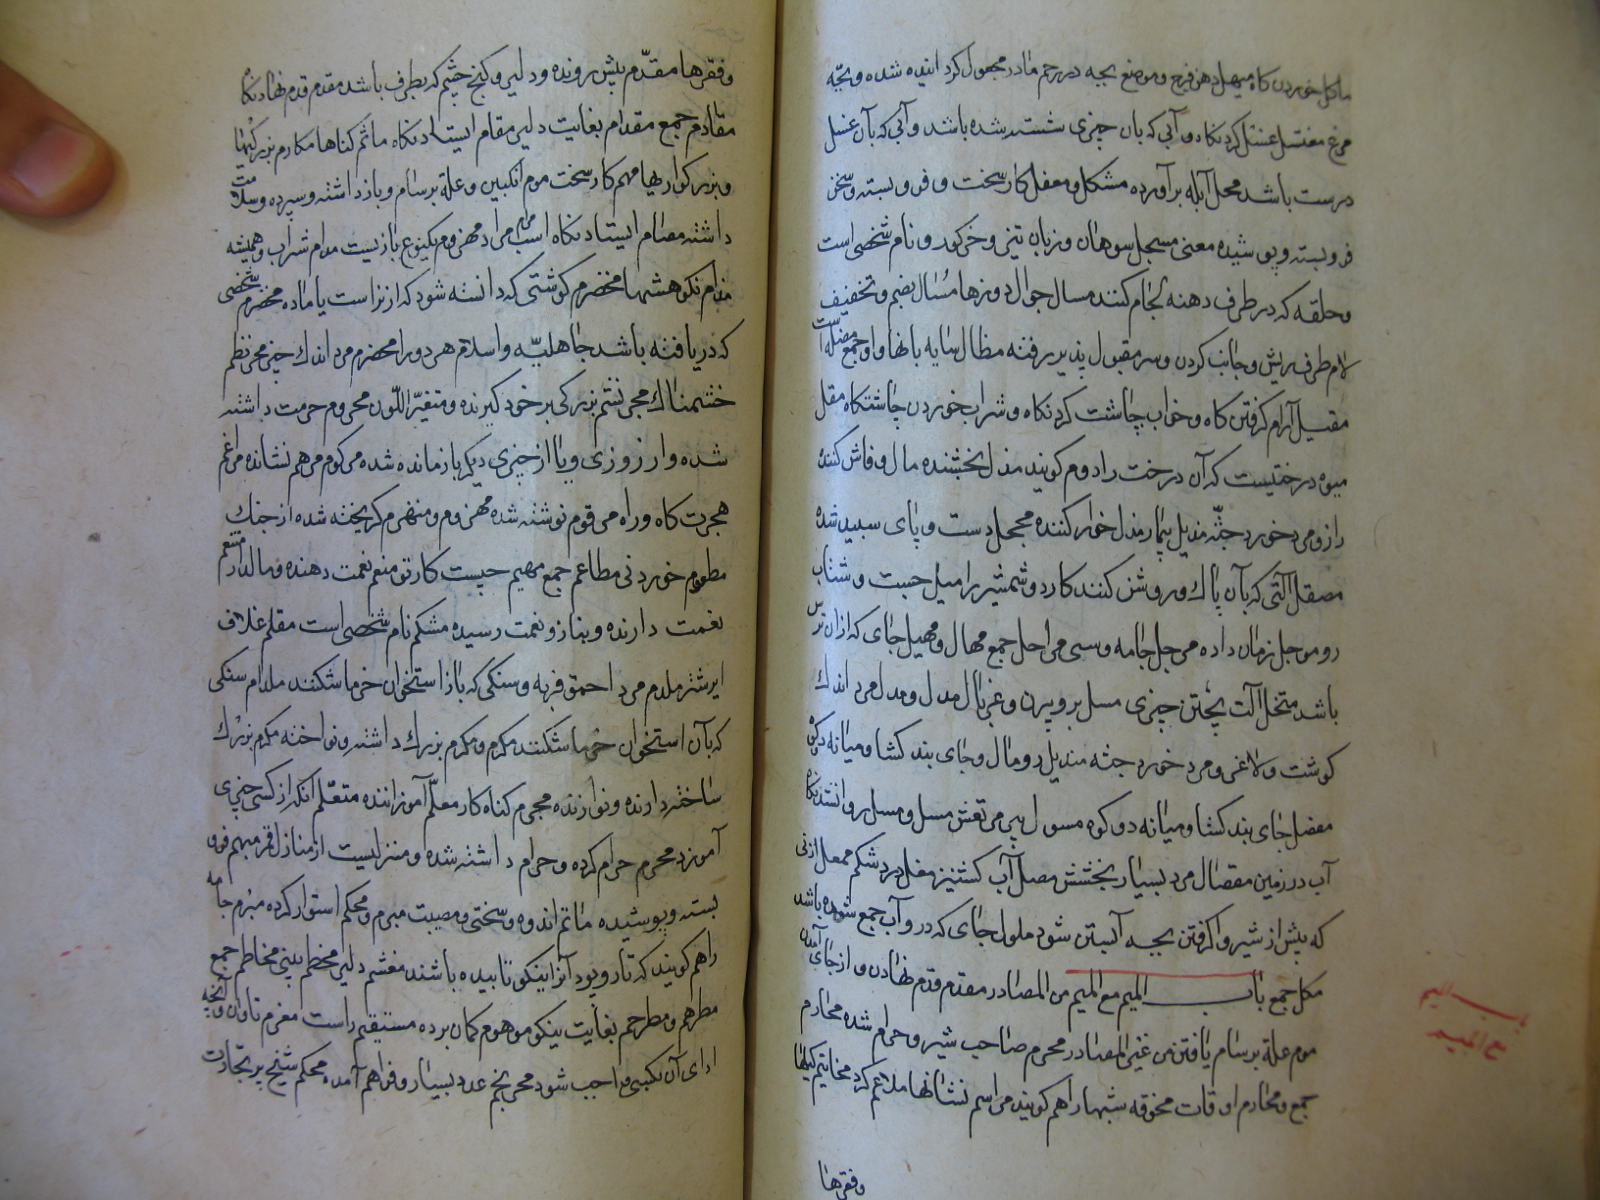 ماکل خوردن کاه میهل دهن فرج و موضع بچه در رحم مادر مجهول کرد اینده شده و بچّه
مرغ مغتسل غسل کردنکاه و آبی که بان چیزی شسته شده باشد و آبی که بآن غسل
درست باشد محل آبله برآورده مشکل و معضل کار سخت و فرو بسته و سخن
فرو بسته و پوشیده معنی مسجل سوهان و زبان تیز و خرکور و نام شخصی است
و حلقه که در طرف دهنه لجام کنند مسال جوال دوزها مسال بضم و تخفیف
لام طرف ریش و جانب کردن و سر مقبول پذیررفته مظال سایه بانها واو جمع مضله است
مقیل آرام کرفتن کاه و خواب چاشت کردنکاه و شراب خوردن چاشتکاه مقل
میوه درختیست که آن درخت را دوم کویند مذل بخشنده مال و فاش کننده
راز و مرد خورد جثّه مذیل بیمار مذل خوار کننده محجل دست و پای سپید شده
مصقل آلتی که بآن پاک و روشن کنند کارد و شمشیر را میل حبیب و شتاب
رو موجل زمان داده مرجل جامه و سی مراحل جمع مهال و مهیل جای که ازان ترس
باشد منخل آلت بیختن چیزی مسل برویزن و غربال مدل و مدل مرد اندک
کوشت و لاغر و مرد خورد جثه مندیل رومال و جای بند کشا و میانه دو کوه
مفصل جای بند کشا و میانه دو کوه مسول پی مرتعش مسل و مسل روانشدنکاه
آب در زمین مفضال مرد بسیار بخشش مصل آب کشنیز مغل درد شکم ممعل آن زنی
که پیش از شیر وا کرفتن بچه آبستن شود ملول جای که درو آب جمع شوده باشد
مکل جمع باب المیم مع المیم من المصادر مقدم قدم نهادن و از جای آمدن
موم علة برسام یافتن من غیر المصادر محرم صاحب شیر و حرام شده محارم
جمع و محارم اوقات مخوفه شبها را هم کویند مراسم نشانها ملاغم کرد مخایتم کیلها
و فقرها
باب المیم
مع المیم
و فقرها مقدّم پیش رونده و دلیر و کنج چشم که بطرف باشد مقدم قدم نهادنکاه
مقادم جمع مقدام بغایت دلیر مقام ایستادنکاه ماثم کناها مکارم بزرکیها
و بزرکواریها مهم کار سخت موم انکبین و علة برسام و باز داشته و سپرده و سلامت
داشته مصام ایستادنکاه اسب مرام مراد مهزوم یکنوع بازیست مدام شراب و همیشه
مذام نکوهشها مخضرم کوشتی که دانسته شود که از نراست یا ماده مخضرم شخصی
که دریافته باشد جاهلیّه و اسلام هر دو را مخضرم مرد اندک چیز محرنظم
خشمناک مجرنثم بزرکی بر خود کیرنده و متغیّر اللّون محروم حرمت داشته
شده و از روزی و یا از چیزی دیکر باز مانده شده مرکوم مرهم نشانده مراغم
هجرت کاه و راه مرقوم نوشته شده مهزوم و منهزم کریخته شده از جنک
مطعوم خوردنی مطاعم جمع مهیم چیست کار تو منعم نعمت دهنده و مالدار متنعم
نعمت دارنده و بناز و نعمت رسیده مشکم نام شخصی است مقلم غلاف
ایر شتر ملدم مرد احمق فربه و سنکی که باز استخوان خرما شکنند ملدام سنکی
که بآن استخوان خرما شکنند مکرم و مکرم بزرک داشته و نواخته مکرم بزرک
ساخته دارنده و نوازنده مجرم کناه کار معلّم آموزاننده متعلّم آنکه از کسی چیزی
آموزد محرم حرام کرده و حرام داشته شده و منزلیست از منازل قمر مبهم فرو
بسته و پوشیده ماتم اندوه و سختی و مصیبت مبرم و محکم استوار کرده مبرم جامه
را هم کویند که تار و پود آنرا نیکو تابیده باشند مغشم دلیر مخطم بینی مخاطم جمع
مطرهم و مطرخم بغایت نیکو موهوم کمان برده مستقیم راست مغرم تاوان و آنچه
ادای آن بکسی واجب شود محرنجم عدد بسیار و فراهم آمده محکم شیخ پر تجارت